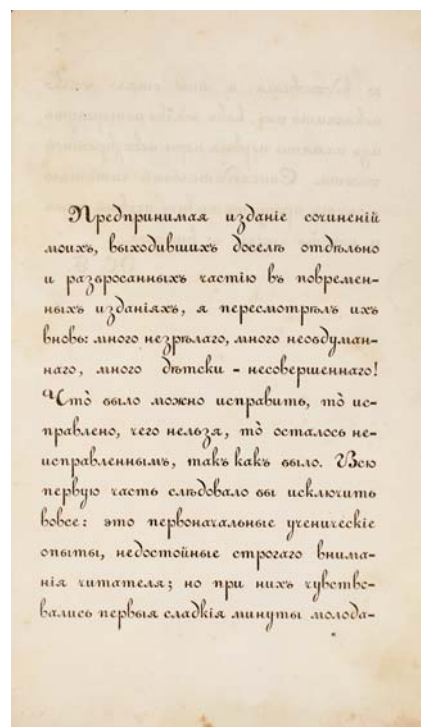 Предпринимая изданіе сочиненій
моихъ, выходившихъ доселѣ отдѣльно
и разбросанныхъ частію въ повремен-
ныхъ изданіяхъ, я пересмотрѣлъ ихъ
вновь: много незрѣлаго, много необдуман-
наго, много дѣтски-несовершеннаго!
Что̀ было можно исправить, то̀ ис-
правлено, чего нельзя, то̀ осталось не-
исправленнымъ, такъ какъ было. Всю
первую часть слѣдовало бы исключить
вовсе: это первоначальные ученическіе
опыты, недостойные строгаго внима-
нія читателя; но при нихъ чувство-
вались первыя сладкія минуты молода-